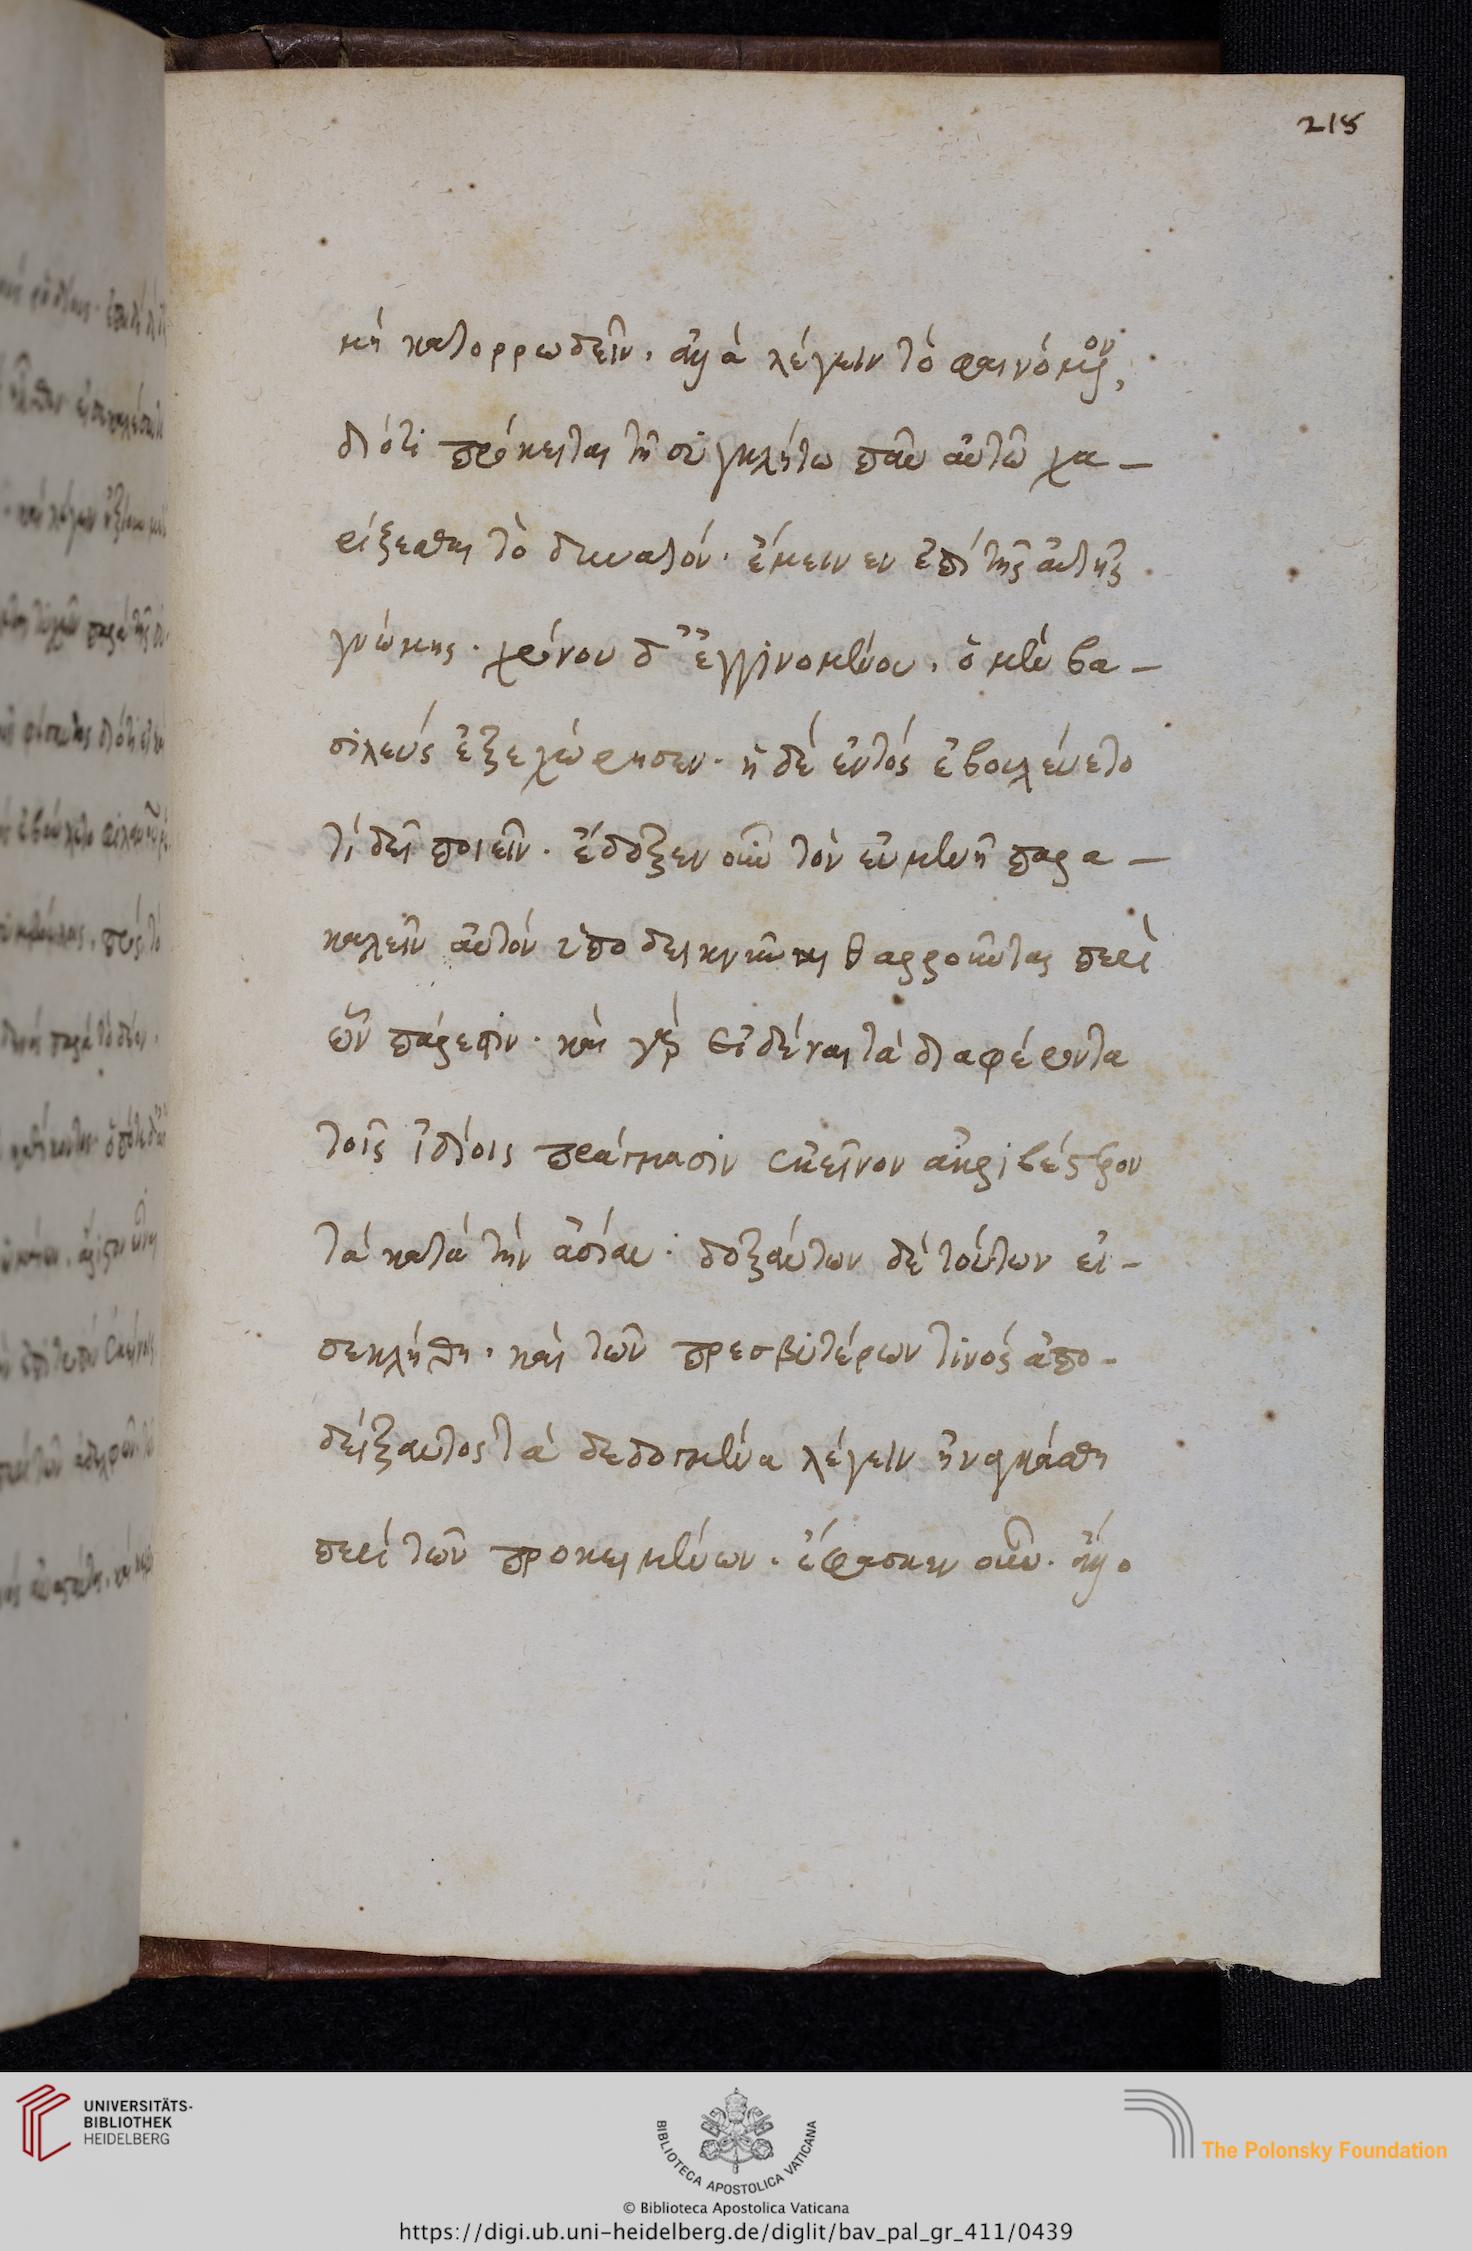 218
μὴ κατορρωδεῖν· ἀλλὰ λέγειν τὸ φαινόμενον,
διότι πρόκειται τῇ συγκλήτω πᾶν αὐτῶ χα-
ρίζεσθαι τὸ δυνατόν· ἔμεινεν ἐπὶ τῆς αὐτῆς
γνώμης· χρόνου δ' ἐγγινομένου, ὁ μὲν βα-
σιλεὺς ἐξεχώρησεν· ἡ δὲ ἐντὸς ἐβουλεύετο
τί δεῖ ποιεῖν· ἔδοξεν οὖν τὸν εὐμενῆ παρα-
καλεῖν αὐτὸν ὑποδεικνύναι θαρροῦντας περὶ
ὧν πάρεστιν· καὶ γὰρ εἰδέναι τὰ διαφέροντα
τοῖς ἰδίοις πράγμασιν ἐκεῖνον ἀκριβέστερον
τὰ κατὰ τὴν ἀσίαν· δοξάντων δὲ τούτων εἰ-
σεκλήθη· καὶ τῶν πρεσβυτέρων τινὸς ἀπο-
δείξαντος τὰ δεδομένα λέγειν ἠναγκάσθη
περὶ τῶν προκειμένων· ἔφασκεν οὖν· ἄλλο
UNIVERSITÄTS-
BIBLIOTHEK
HEIDELBERG
BIBLIOTECA APOSTOLICA VATICANA
© Biblioteca Apostolica Vaticana
The Polonsky Foundation
https://digi.ub.uni-heidelberg.de/diglit/bav_pal_gr_411/0439